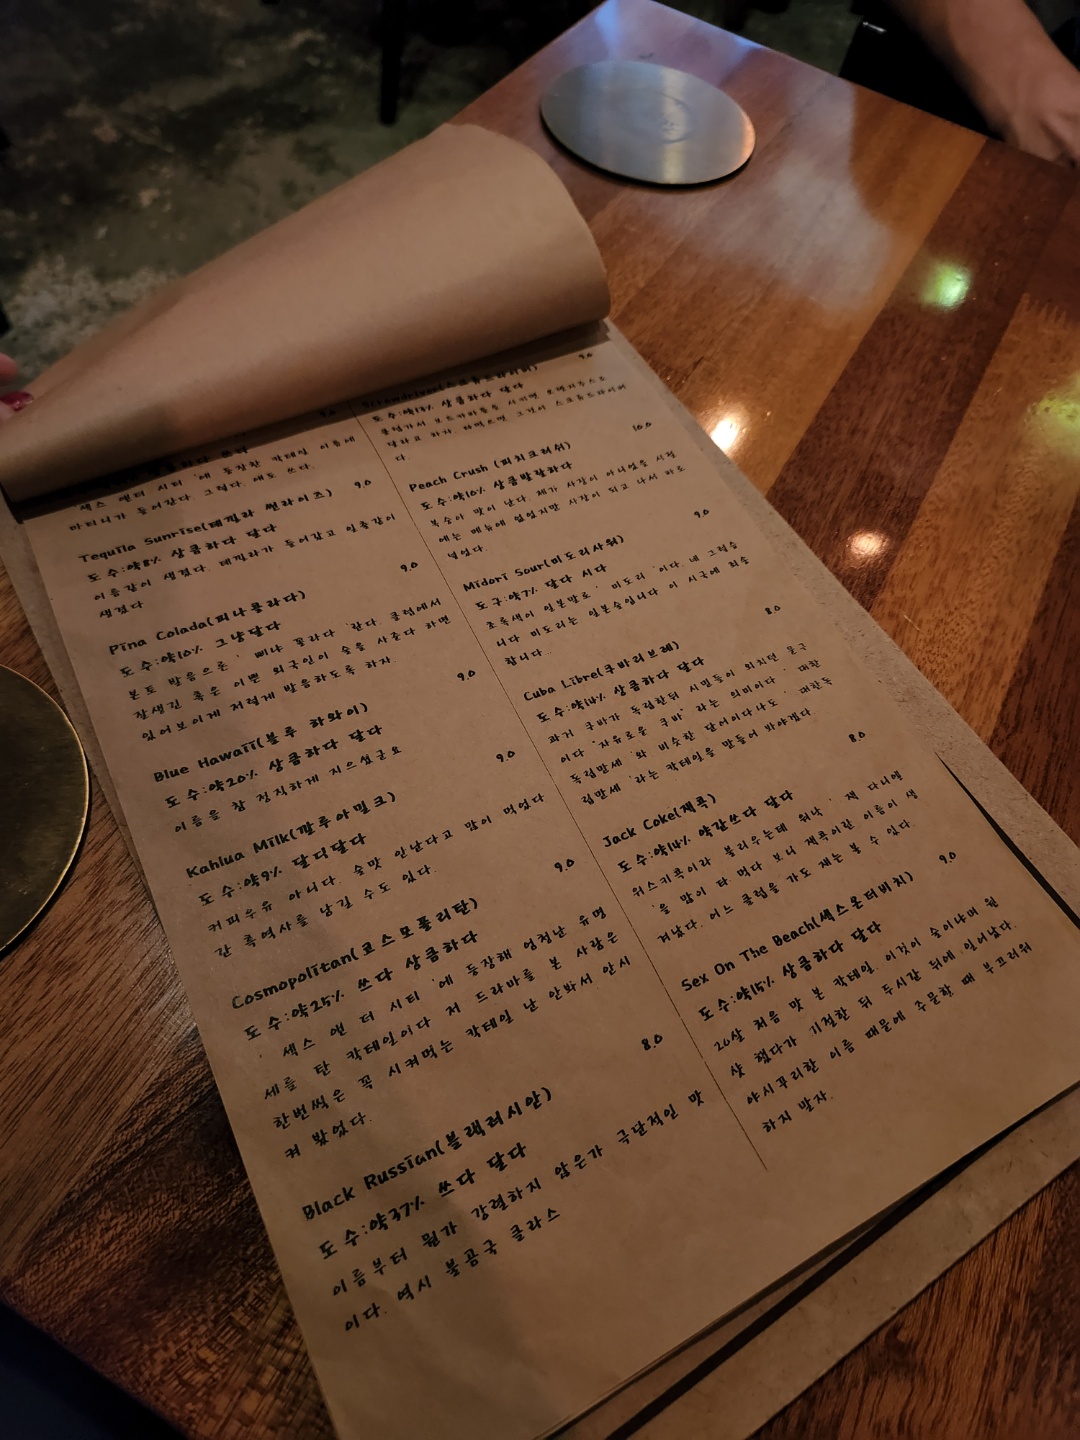 9.0
상큼하다 쓰다
섹스 앤더 시티 '에 등장한 칵테일 이름에
마티니가 들어간다. 그렇다. 얘도 쓰다.
Tequila Sunrise(테낄라 썬라이즈) 9.0
도수:약8% 상큼하다 달다
이름같이 생겼다. 테낄라가 들어갔고 일출같이
생겼다
Pina Colada(피나콜라다) 9.0
도수:약10% 그냥달다
본토 발음으론 ' 삐냐 꼴라다 '란다. 클럽에서
잘생긴 혹은 이쁜 외국인이 술을 사준다 하면
있어보이게 저렇게 발음하도록 하자.
Blue Hawaii(블루 하와이) 9.0
도수:약20% 상큼하다 달다
이름을 참 정직하게 지으셨군요
Kahlua Milk(깔루아밀크) 9.0
도수:약9% 달디달다
커피우유 아니다. 술맛 안난다고 많이 먹었다
간 흑역사를 남길 수도 있다.
Cosmopolitan(코스모폴리탄) 9.0
도수:약25% 쓰다 상큼하다
' 섹스 앤 더 시티 '에 등장해 엄청난 유명
세를 탄 칵테일이다 저 드라마를 본 사람은
한번씩은 꼭 시켜먹는 칵테일 난 안봐서 안시
켜 봤었다.
Black Russian(블랙러시안) 8.0
도수:약37% 쓰다 달다
이름부터 뭔가 강렬하지 않은가 극단적인 맛
이다. 역시 불곰국 클라스
Screwdriver(스크류드라이버) 9.0
도수:약13% 상큼하다 달다
클럽가서 보드카위들을 시키면 오렌지주스도
달라고 하자. 타먹으면 그것이 스크류드라이버
다.
Peach Crush (피치크러쉬) 10.0
도수:약10% 상큼발랄하다
복숭이 맛이 난다. 제가 사장이 아니었을 시절
에는 메뉴에 없었지만 사장이 되고 나서 바로
넣었다.
Midori Sour(미도리사워) 9.0
도구:약7% 달다 시다
초록색이 일본말로 ' 미도리 '이다. 네 그렇습
니다 미도리는 일본술입니다 이 시국에 죄송
합니다..
Cuba Libre(쿠바리브레) 8.0
도수:약14% 상큼하다 달다
과거 쿠바가 독립한뒤 시민들이 외치던 문구
이다 '자유로운 쿠바' 라는 의미이다 ' 대한
독립만세 '와 비슷한 단어이다나도 ' 대한독
립만세 '라는 칵테일을 만들어 봐야겠다
Jack Coke(잭콕) 8.0
도수:약14% 약간쓰다 달다
위스키콕이라 불리우는데 워낙 ' 잭 다니엘
'을 많이 타 먹다 보니 잭콕이란 이름이 생
겨났다. 어느 클럽을 가도 쟤는 볼 수 있다.
Sex On The Beach(섹스온더비치) 9.0
도수:약15% 상큼하다 달다
26살 처음 맛 본 칵테일. 이것이 술이냐며 원
샷 했다가 기절한 뒤 두시간 뒤에 일어났다.
야시꾸리한 이름 때문에 주문할 때 부끄러워
하지 말자.